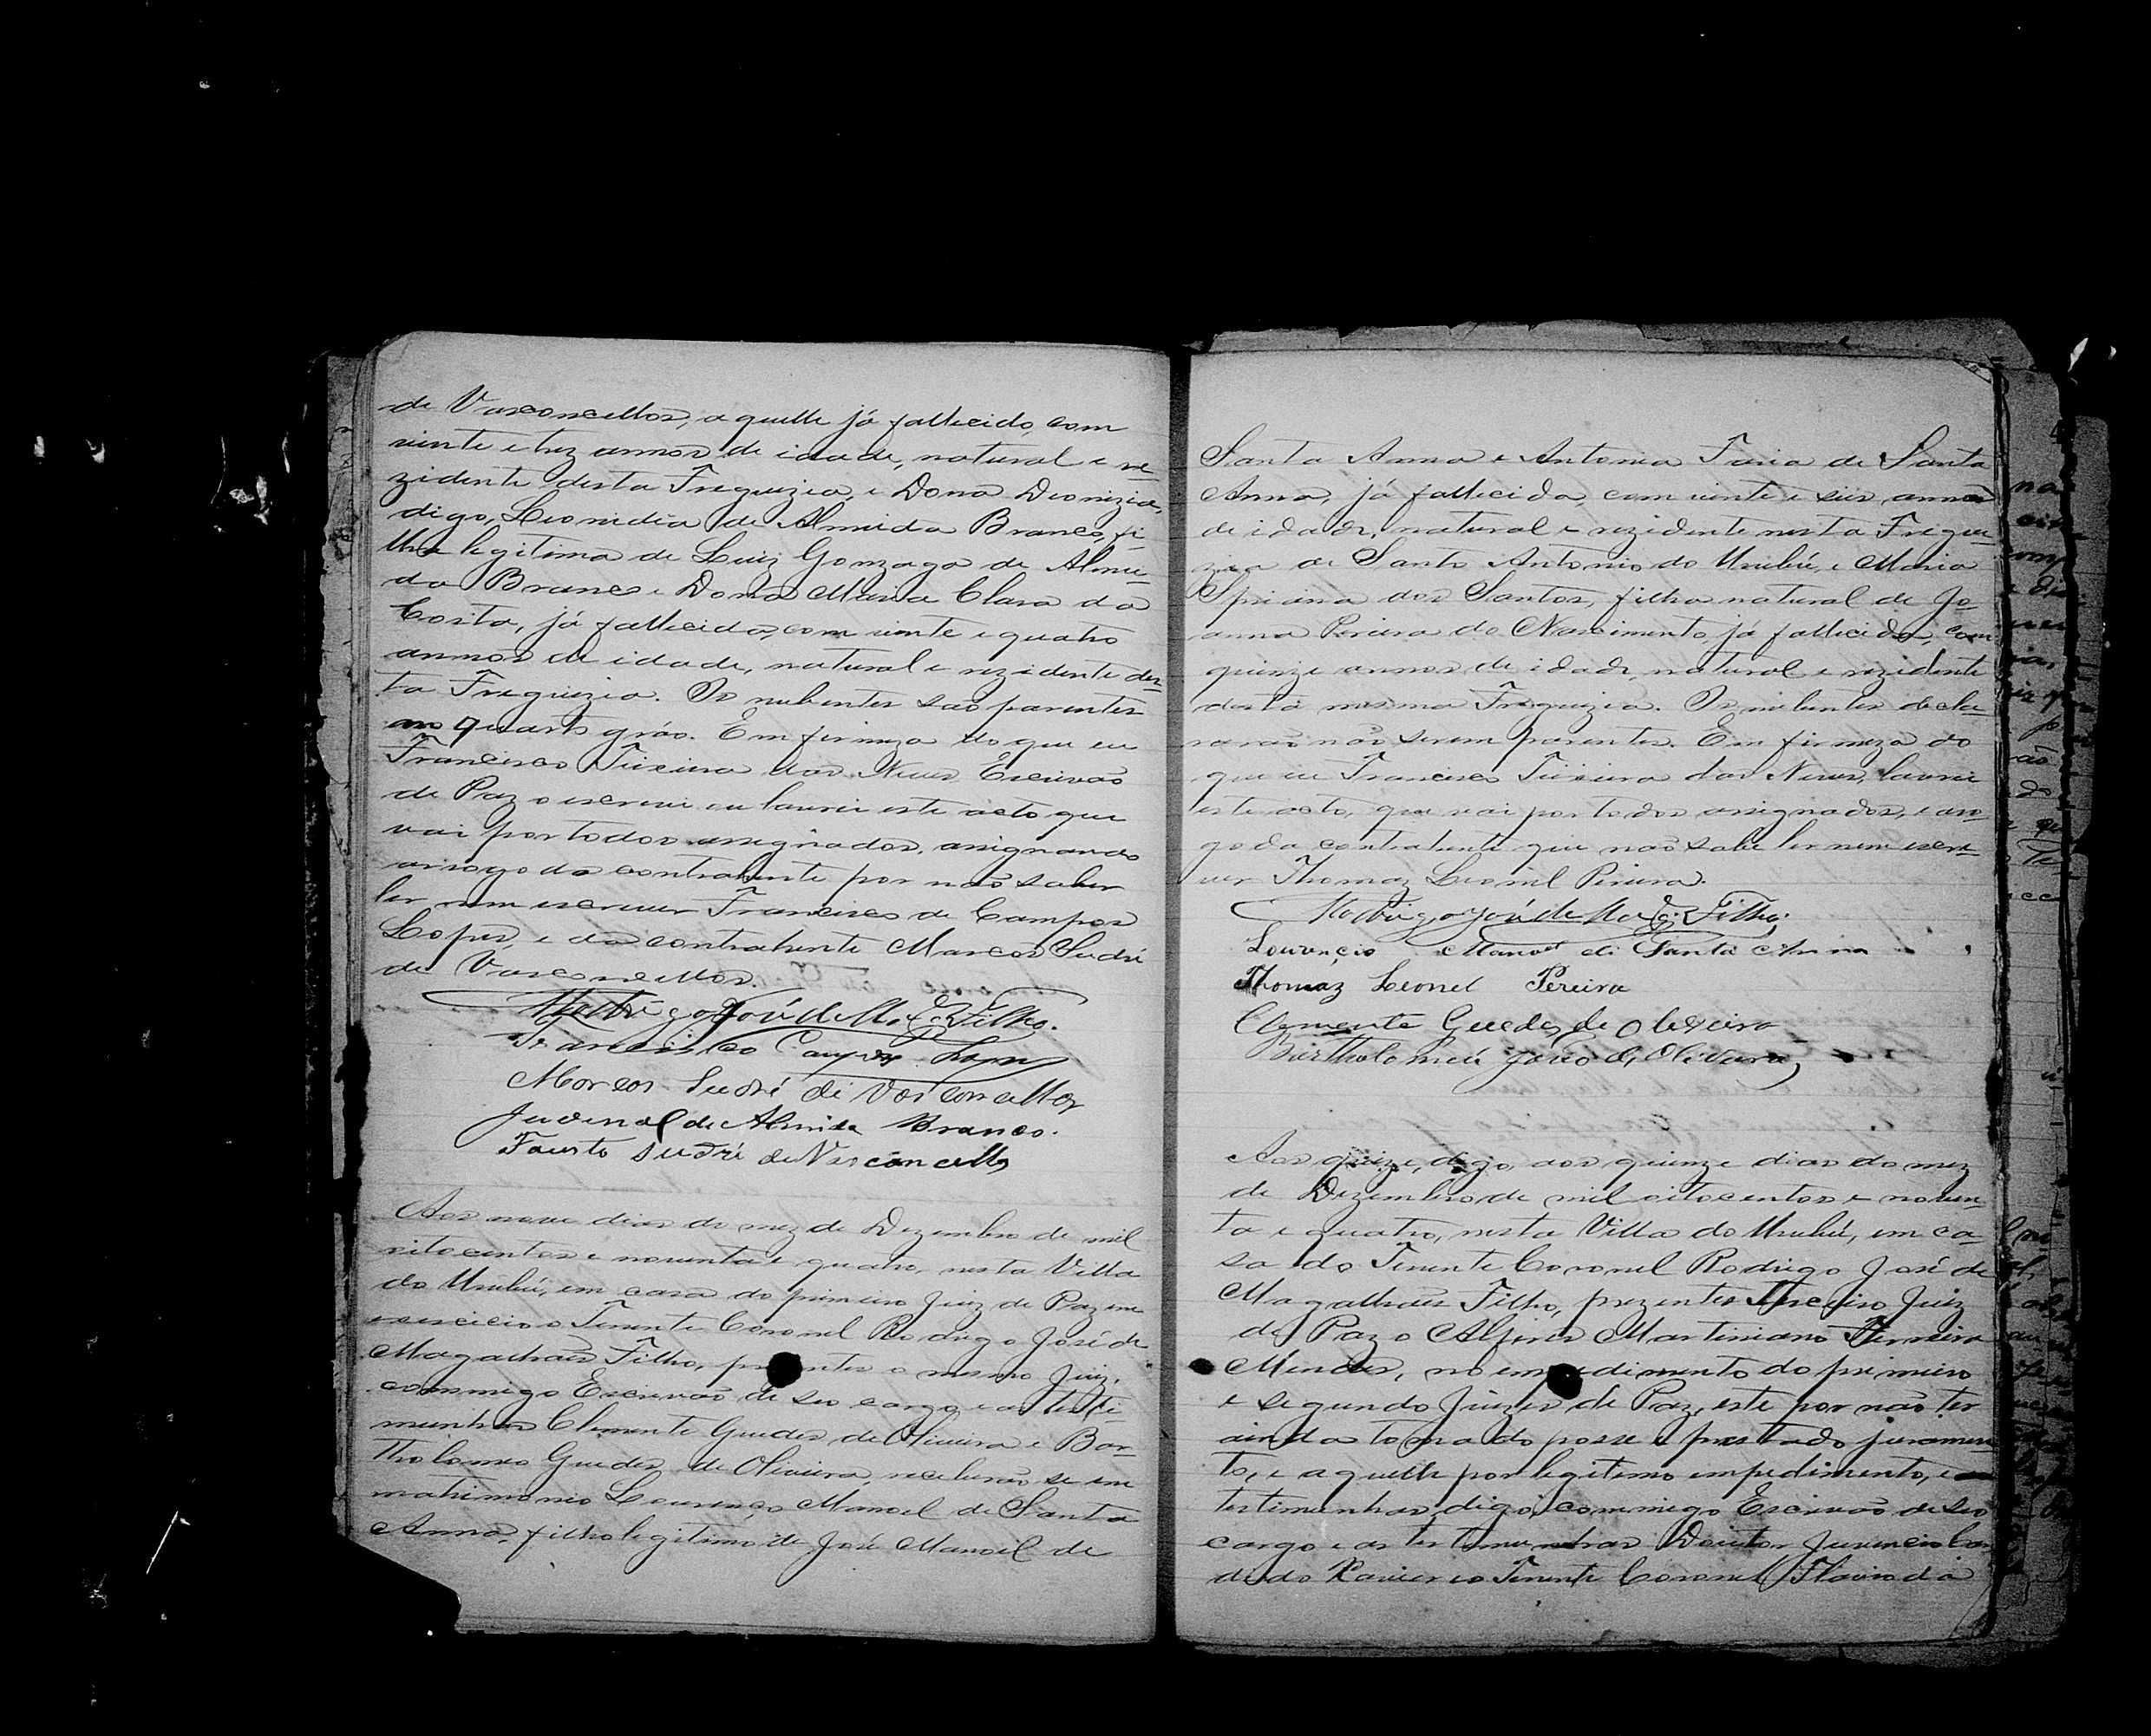 de Vasconcellos, aquelle já fallecido, com
vinte e trez annos de idade, natural e re-
zidente desta Freguezia, e Dona Dionizia,
digo, Leonidia de Almeida Branco, fi-
lha legitima de Luiz Gonzaga de Almei-
da Branco e Dona Maria Clara da
Costa, já fallecida, com vinte e quatro
annos de idade, natural e rezidente des-
ta Freguezia. Os nubentes são parentes
no quarto gráo. Em firmeza do que eu
Francisco Teixeira das Neves Escrivão
de Paz o escrevi eu lavrei este acto que
vai por todos assignados, assignando
arrogo da contrahente por não saber
ler nem escrever Francisco de Campos
Lopes, e da contrahente Marcos Sudré
de Vasconcellos.
Rodrigo José de Mag. Filho.
Francisco Campos Lopes
Marcos Sudré de Vasconcellos
Juvenal de Almida Branco.
Fausto Sudré de Vasconcellos
Aos nove dias do mez de Dezembro de mil
oitocentos e noventa e quatro, nesta Villa
do Urubú, em casa do primeiro Juiz de Paz em
exercicio o Tenente Coronel Rodrigo José de
Magalhães Filho, prezentes o mesmo Juiz,
commigo Escrivão de seo cargo e as teste-
munhas Clemente Guedes de Oliveira e Bar-
tholomeo Guedes de Oliveira, receberão-se em
matrimonio Lourenço Manoel de Santa
Anna, filho legitimo de José Manoel de
Santa Anna e Antonia Faria de Santa
Anna, já fallecida, com vinte e seis annos
de idade, natural e rezidente nesta Fregue-
zia de Santo Antonio do Urubú, e Maria
dos Santos, filha natural de Jo-
anna Pereira do Nascimento, já fallecida, com
quinze annos de idade, natural e rezidente
desta mesma Freguezia. Os nubentes decla-
rarão não serem parentes. Em firmeza do
que eu Francisco Teixeira das Neves, lavrei
este acto, que vai por todos assignados, e aro-
go da contrahente que não sabe ler nem escre-
ver Thomaz Leonel Pereira.
Rodrigo José de Mag. Filho.
Lourenço Manoel de Santa Anna
Thomaz Leonel Pereira
Clemente Guedes de Oliveira
Bartholomeu de Oliveira
Aos quize, digo, aos quinze dias do mez
de Dezembro de mil oitocentos e noven-
ta e quatro, nesta Villa do Urubú, em ca-
sa do Tenente Coronel Rodrigo José de
Magalhães Filho, prezentes Terceiro Juiz
de Paz o Alferes Martiniano Ferreira
Mendes, no empedimento do primeiro
e segundo Juizes de Paz, este por não ter
ainda tomado posse e prestado juramen-
to, e aquelle por legitimo empedimento, e
testimunhas, digo, commigo Escrivão de seo
cargo e as testimunhas Doutor Juvencio Can-
dido Xavier e o Tenente Coronel Flavio da